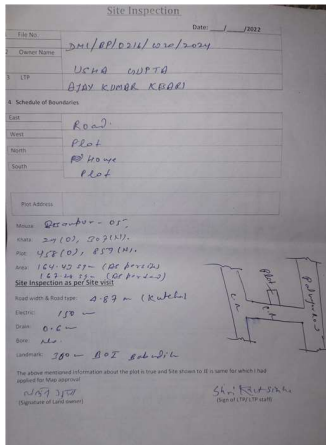 Site Inspection
Date: ___/___/2022
1 File No DMI/BP/0216/W20/2024
2 Owner Name USHA GUPTA
3 LTP AJAY KUMAR KESARI
4. Schedule of Boundaries
East Road.
West Plot
North Home
South Plot
Plot Address
Mouza: 05.
Khata: 27(O), 507(N).
Plot: 458(O), 857(N).
Area: 164.43 sqm (As per
167. sqm (As per
Site Inspection as per Site visit
Road width & Road type: 4.87 m (Kutcha)
Electric: 150 m
Drain: 0.6 m
Bore: No.
Landmark: 300 m BOI
The above mentioned information about the plot is true and Site shown to JE is same for which I had
applied for Map approval
(Signature of Land owner)
(Sign of LTP/ LTP staff)